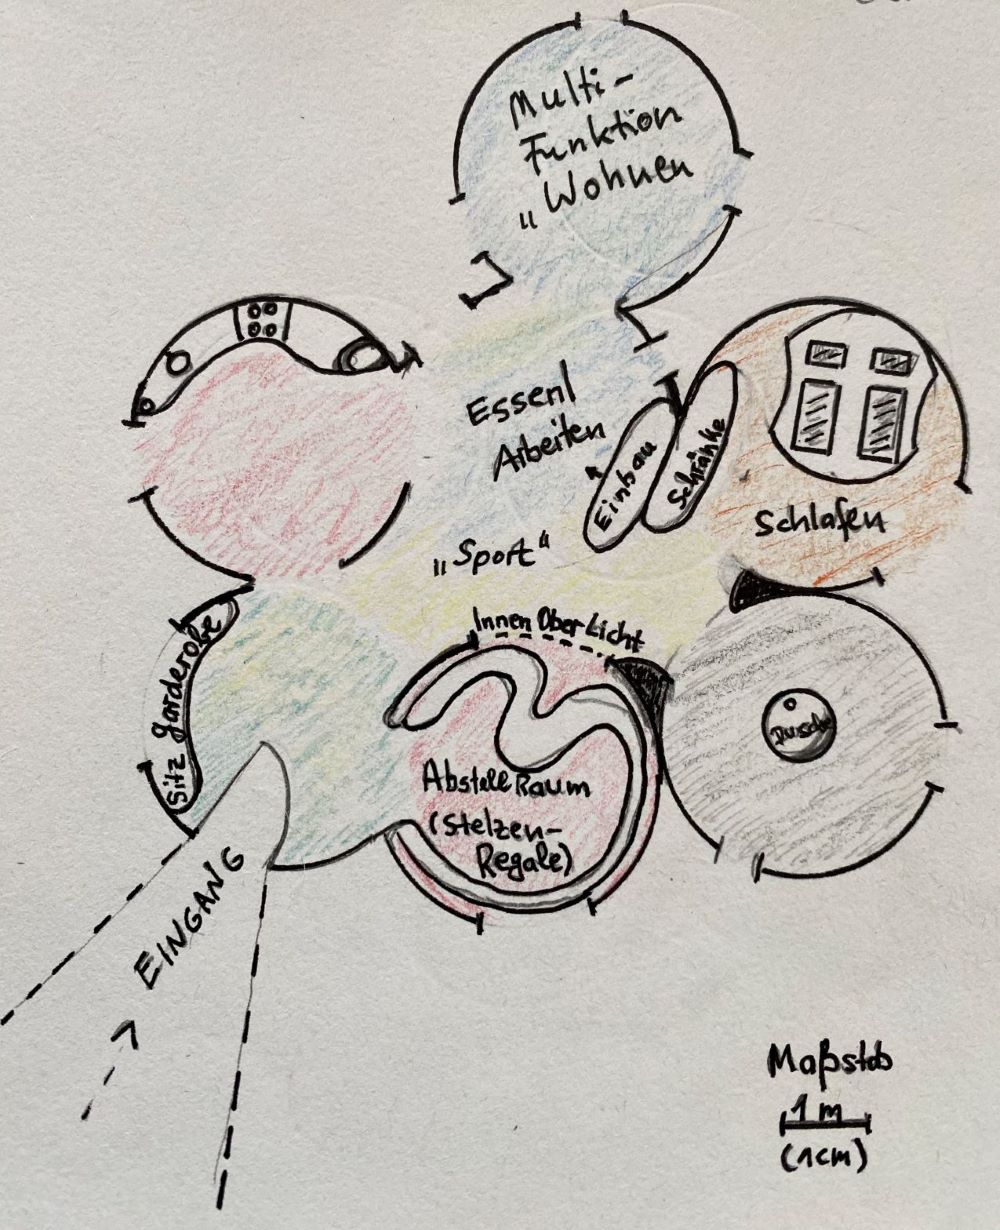 Multi-
Funktion
"Wohnen
Essen/
Arbeiten
Einbau
Schränke
Schlafen
"Sport"
Innen Ober Licht
Sitz garderobe
Dusche
Abstell Raum
(Stelzen-
Regale)
EINGANG
Maßstab
1 m
(1cm)